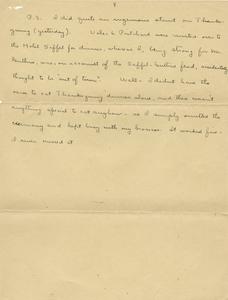 P.S. I did quite an ungenerous stunt on Thanks-
giving (yesterday). Wales & Pritchard were invited over to
the Hotel Saffel for dinner, whereas I, being strong for the
Guthries, was, on account of the Saffel-Guthrie feud, evidently
thought to be "out of town". Well - I didn't have the
nerve to eat Thanksgiving dinner alone, and there wasn't
anything special to eat anyhow - so I simply omitted the
ceremony and kept busy with my business. It worked fine -
I never missed it